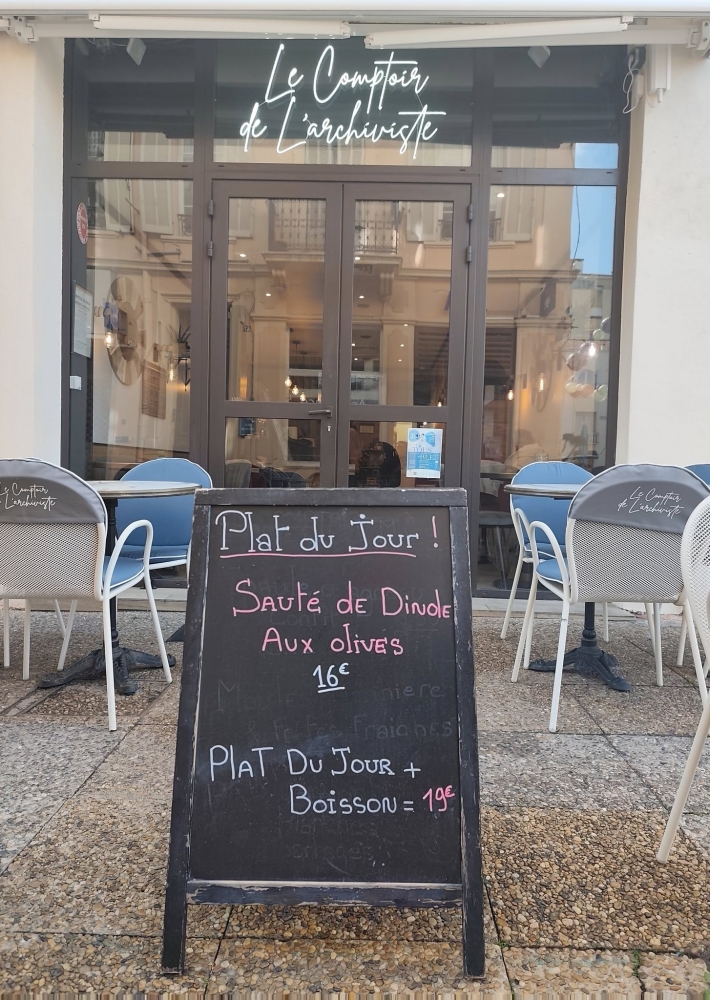 Le Comptoir
de L'archiviste
Le Comptoir
de L'archiviste
Le Comptoir
de L'archiviste
Plat du Jour !
Sauté de Dinde
Aux olives
16€
Frites Fraîches
PLAT DU JOUR +
BOISSON = 19€